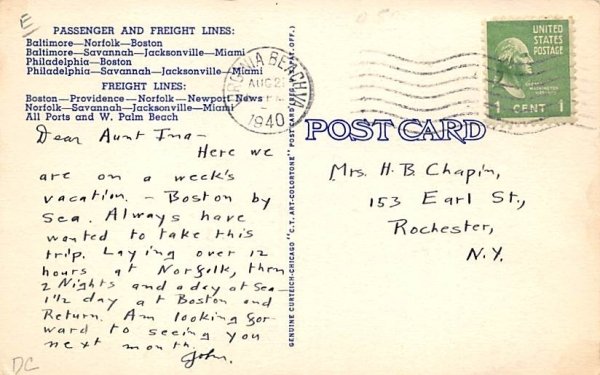 E
PASSENGER AND FREIGHT LINES:
Baltimore—Norfolk—Boston
Baltimore—Savannah—Jacksonville—Miami
Philadelphia—Boston
Philadelphia—Savannah—Jacksonville—Miami
FREIGHT LINES:
Boston—Providence—Norfolk—Newport News
Norfolk—Savannah—Jacksonville—Miami
All Ports and W. Palm Beach
Dear Aunt Ina-
Here we
are on a week's
vacation. - Boston by
Sea. Always have
wanted to take this
trip. Laying over 12
hours at Norfolk, then
2 Nights and a day at Sea-
1½ day at Boston and
Return. Am looking for-
ward to seeing you
next month.
John.
DC
VIRGINIA BEACH VA
AUG 2
1940
GENUINE CURTEICH-CHICAGO "C.T. ART-COLORTONE" POST CARD
OFF.)
POST CARD
UNITED
STATES
POSTAGE
WASHINGTON
1 CENT 1
Mrs. H. B. Chapin,
153 Earl St.,
Rochester,
N.Y.